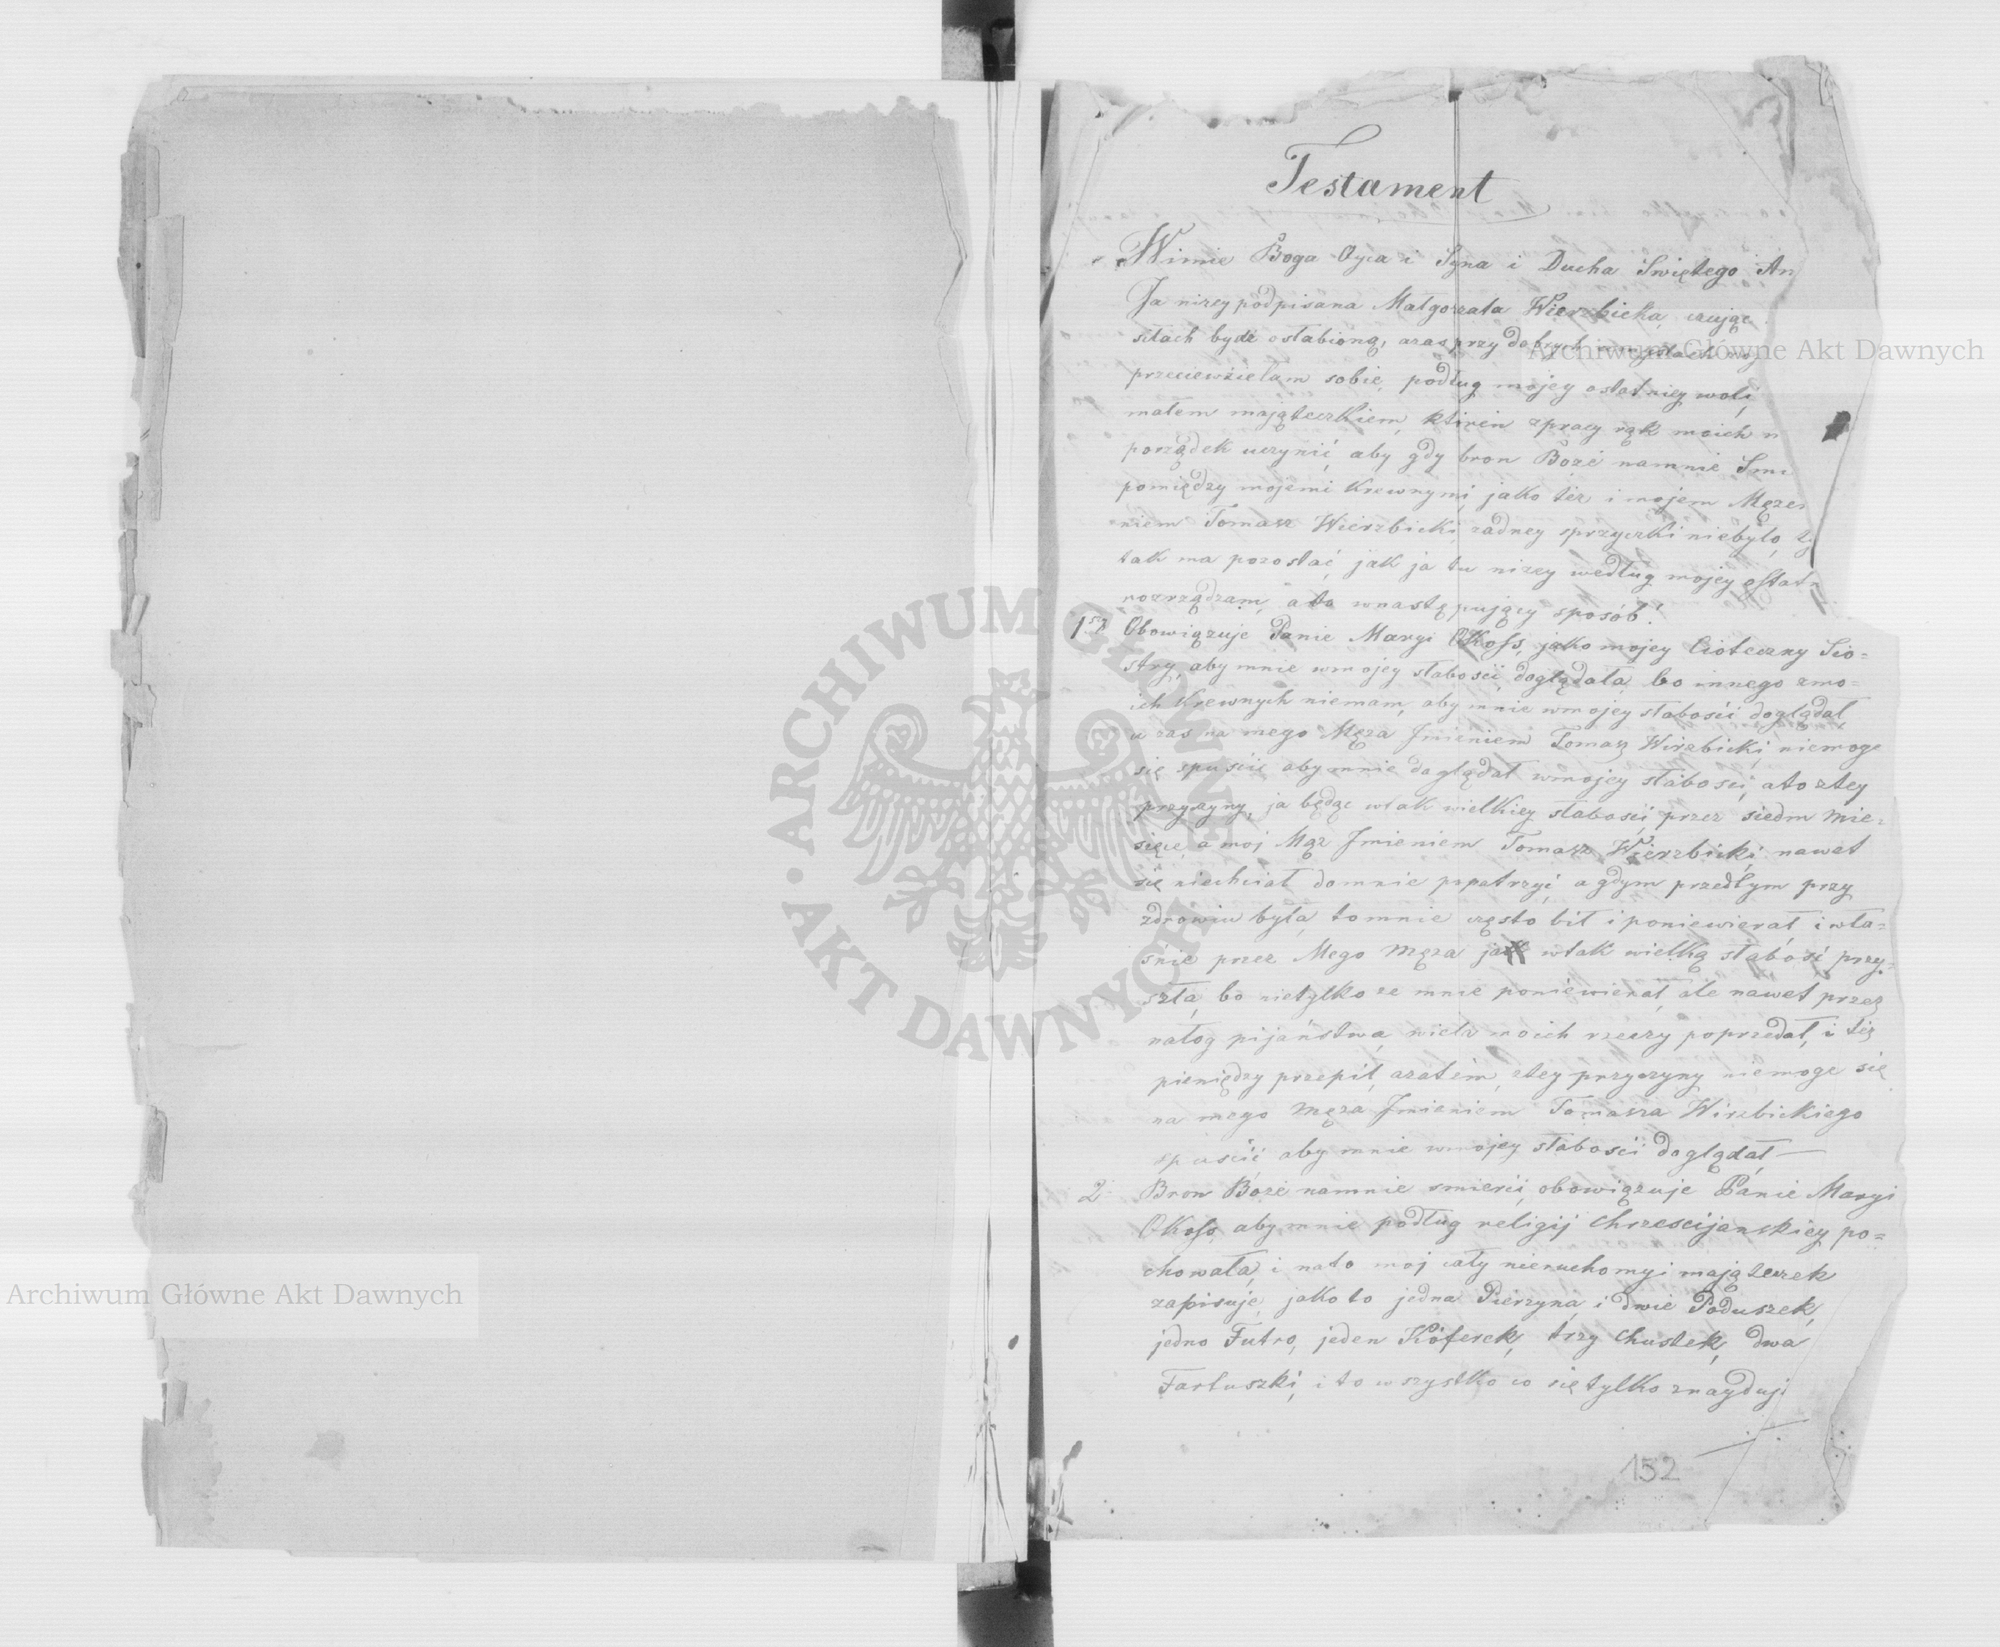 Testament
Wimie Boga Oyca i Syna i Ducha Swiętego Am
Ja nizey podpisana Małgorzata Wierzbicka, czując
siłach bydz osłabioną, azas przy dobrych
przeciewziełam sobie, podług mojey ostatniey woli,
małem mająteczkiem, ktiren zpracy rąk moich n
porządek uczynić, aby gdy bron Boże namnie Smi
pomiędzy mojemi Krewnymi, jako téz i mojem Męzem
niem Tomasz Wierzbicki, zadney sprzyczki niebyło,
tak ma pozostać, jak ja tu nizey według mojey ostatn
rozrządzam, a to wnastępujący sposób!
1sz Obowiązuje Panie Maryi Okoss, jako mojey Cioteczny Sio=
stry, aby mnie wmojey słabości doglądała, bo innego zmo=
ich Krewnych niemam, aby mnie wmojey słabości doglądał,
a zas na mego Męza Jmieniem Tomasz Wirzbicki, niemoge
się spuscić aby mnie doglądał wmojey słabosci, ato ztey
przyczyny, ja będąc wtak wielkiey słabosci przez siedm mie=
sięcie, a moj Mąz Jmieniem Tomasz Wierzbicki, nawet
się niechciał domnie popatrzyć, a gdym przedtym przy
zdrowiu była, to mnie często bił i poniewierał, i wła=
śnie przez Mego Męza ja wtak wielką słabość przy=
szła, bo nietylko ze mnie poniewierał, ale nawet przez
nałog pijaństwa, wiele moich rzeczy poprzedał, i téz
pieniędzy przepił, azatém, ztey przyczyny niemoge się
na mego Męza Jmieniem Tomasza Wirzbickiego
spuścić, aby mnie wmojey słabości doglądał,—
2 Bron Boże namnie smierci, obowiązuje Panie Maryi
Okoss, aby mnie podług religij chrzescijanskiey po=
chowała, i nato moj cały nieruchomyi mająteczek
zapisuje, jako to jedna Pierzyna, i dwie Poduszek,
jedno Futro, jeden Kóferek, trzy Chustek, dwa
Fartuszki, i to wszystko co się tylko znayduji
152
Archiwum Główne Akt Dawnych
Archiwum Główne Akt Dawnych
ARCHIWUM GŁÓWNE AKT DAWNYCH